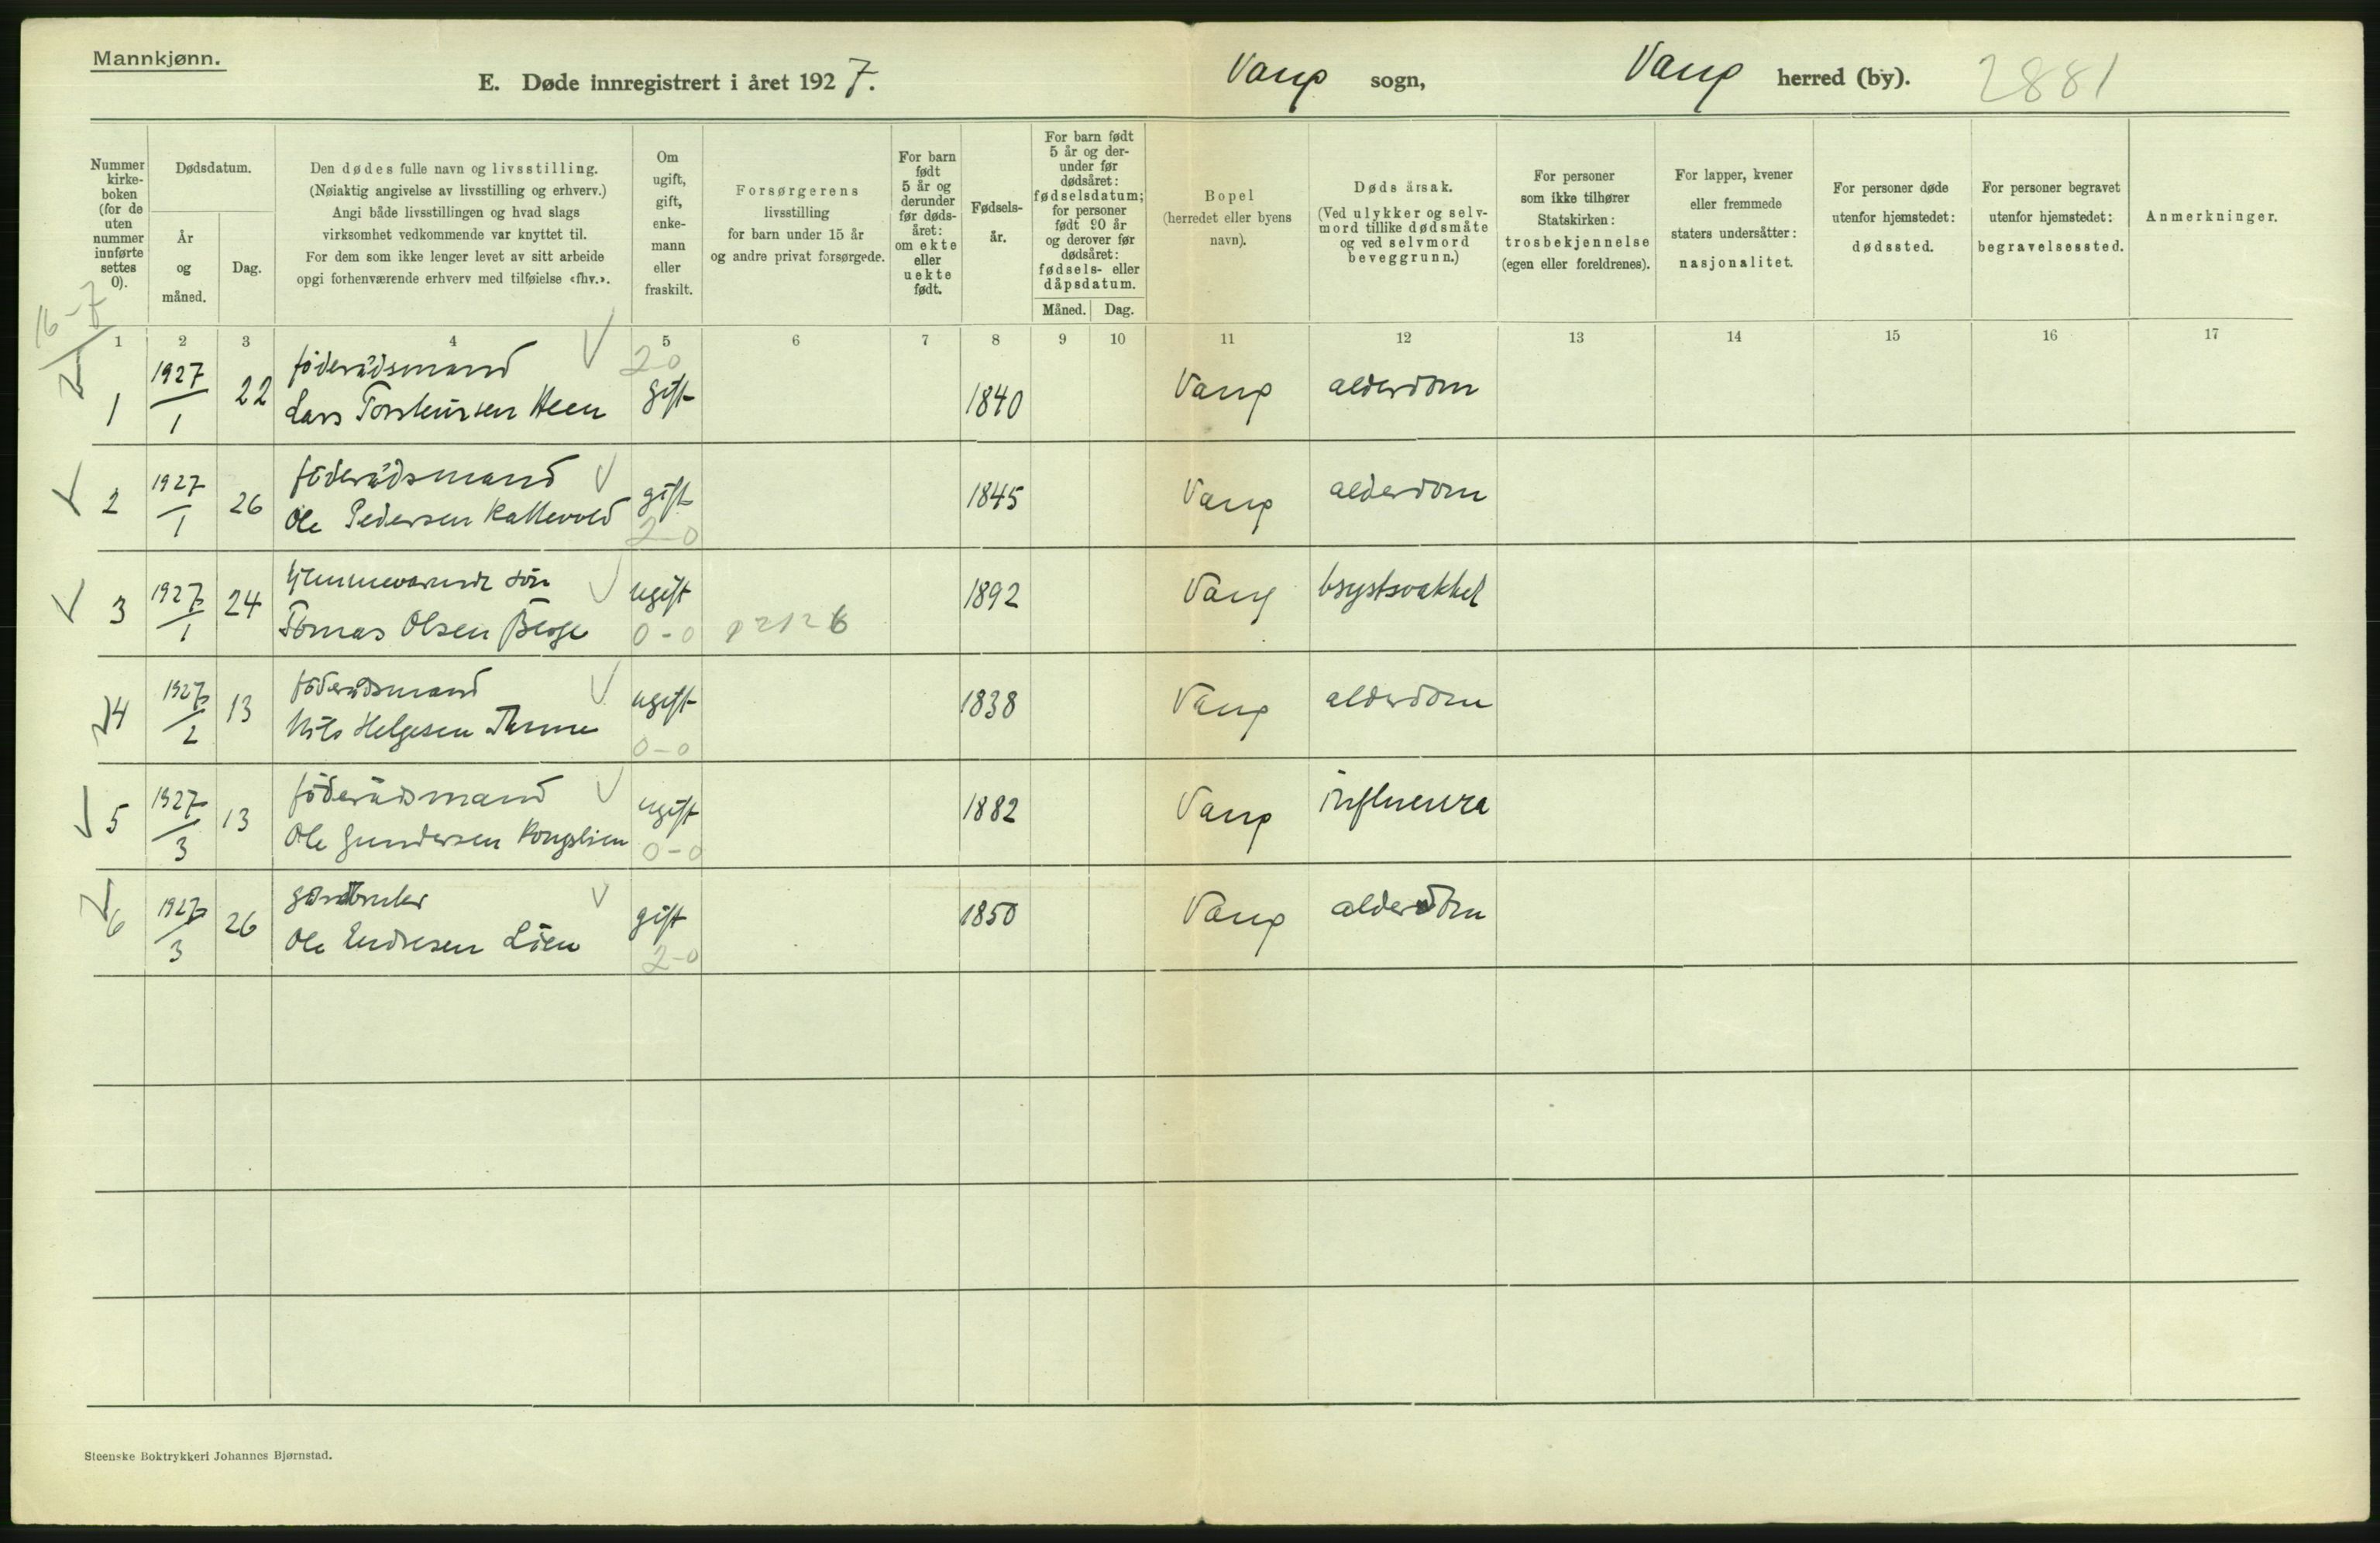 Mannkjønn.
E. Døde innregistrert i året 1927.
Vang sogn, Vang herred (by). 2881
Nummer
kirke-
boken
(for de
uten
nummer
innførte
settes
0).
Dødsdatum.
År
og
måned.
Dag.
Den dødes fulle navn og livsstilling.
(Nøiaktig angivelse av livsstilling og erhverv.)
Angi både livsstillingen og hvad slags
virksomhet vedkommende var knyttet til.
For dem som ikke lenger levet av sitt arbeide
opgi forhenværende erhverv med tilføielse «fhv.».
Om
ugift,
gift,
enke-
mann
eller
fraskilt.
Forsørgerens
livsstilling
for barn under 15 år
og andre privat forsørgede.
For barn
født
5 år og
derunder
før døds-
året:
om ekte
eller
uekte
født.
Fødsels-
år.
For barn født
5 år og der-
under før
dødsåret:
fødselsdatum;
for personer
født 90 år
og derover før
dødsåret:
fødsels- eller
dåpsdatum.
Måned. Dag.
Bopel
(herredet eller byens
navn).
Dødsårsak.
(Ved ulykker og selv-
mord tillike dødsmåte
og ved selvmord
beveggrunn.)
For personer
som ikke tilhører
Statskirken:
trosbekjennelse
(egen eller foreldrenes).
For lapper, kvener
eller fremmede
staters undersåtter:
nasjonalitet.
For personer døde
utenfor hjemstedet:
dødssted.
For personer begravet
utenfor hjemstedet:
begravelsessted.
Anmerkninger.
16-7
1 2 3 4 5 6 7 8 9 10 11 12 13 14 15 16 17
föderådsmand 2-0
1 1927/1 22 Lars Torsteinsen Heen gift 1840 Vang alderdom
föderådsmand
2 1927/1 26 Ole Pedersen Kattevold gift 1845 Vang alderdom
2-0
hjemmeværende sön
3 1927/1 24 Tomas Olsen Berge ugift 1892 Vang brystsvakhet
0-0
föderådsmand
4 1927/2 13 Nils Helgesen ugift 1838 Vang alderdom
0-0
föderådsmand
5 1927/3 13 Ole Gundersen Kongslien ugift 1882 Vang influenza
0-0
gårdbruker
6 1927/3 26 Ole Endresen Löen gift 1850 Vang alderdom
2-0
Steenske Boktrykkeri Johannes Bjørnstad.